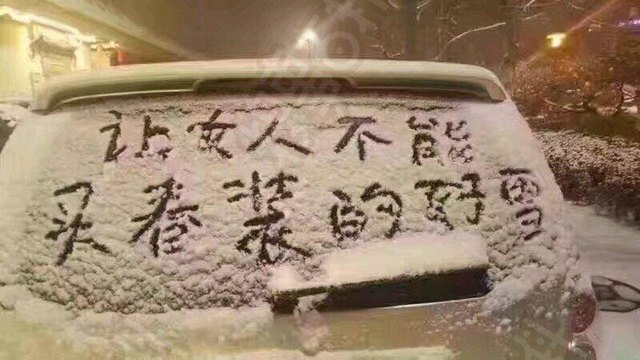 让女人不能
买春装的好雪